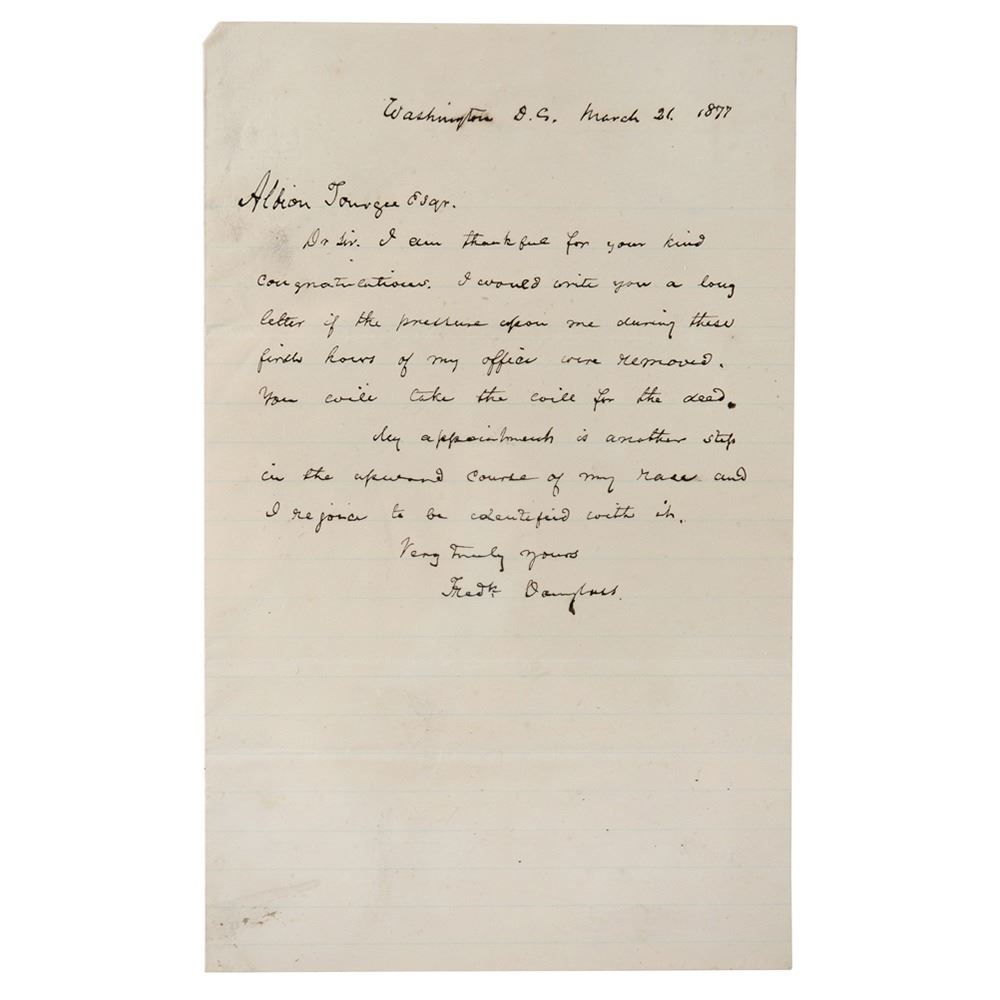 Washington D.C. March 21. 1877
Albion Tourgee Esqr.
Dr Sir. I am thankful for your kind
congratulations. I would write you a long
letter if the pressure upon me during these
first hours of my office were removed.
You will take the will for the deed.
My appointment is another step
in the upward course of my race and
I rejoice to be identified with it.
Very truly yours
Fredk Douglass.